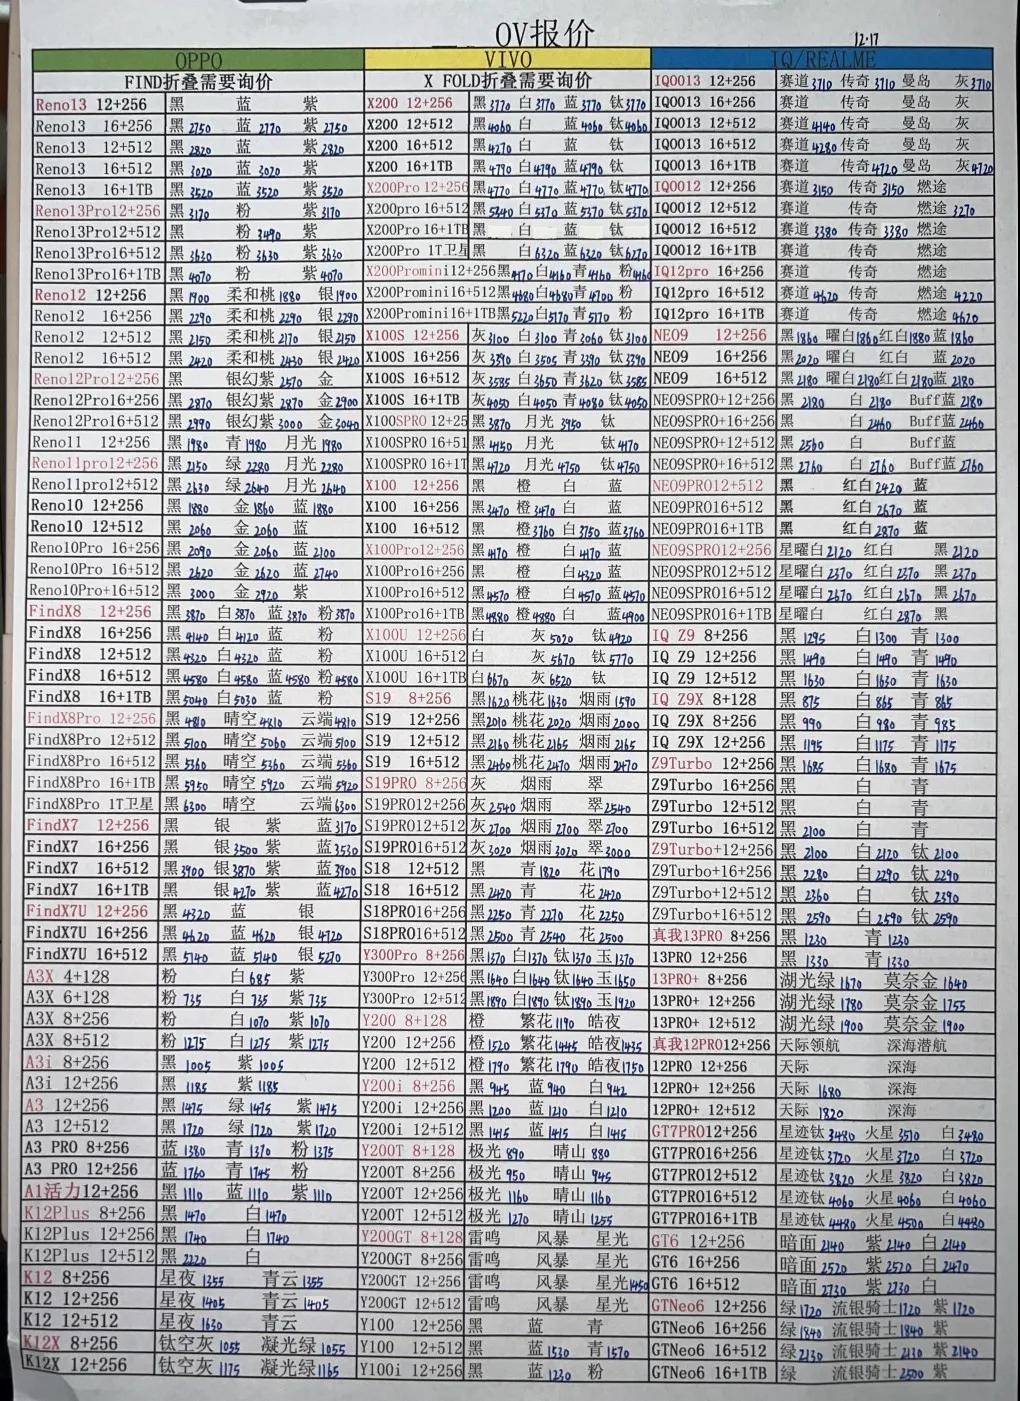 OV报价 12.17
OPPO VIVO IQ/REALME
FIND折叠需要询价 X FOLD折叠需要询价 IQOO13 12+256 赛道3710 传奇3710 曼岛 灰3710
Reno13 12+256 黑 蓝 紫 X200 12+256 黑3770 白3770 蓝3770 钛3770 IQOO13 16+256 赛道 传奇 曼岛 灰
Reno13 16+256 黑2750 蓝2770 紫2750 X200 12+512 黑4060 白 蓝4060 钛4060 IQOO13 12+512 赛道4140 传奇 曼岛 灰
Reno13 12+512 黑2820 蓝 紫2820 X200 16+512 黑4270 白 蓝 钛 IQOO13 16+512 赛道4280 传奇 曼岛 灰
Reno13 16+512 黑3020 蓝3020 紫 X200 16+1TB 黑4790 白4790 蓝4790 钛 IQOO13 16+1TB 赛道 传奇4720 曼岛 灰4720
Reno13 16+1TB 黑3520 蓝3520 紫3520 X200Pro 12+256 黑4770 白4770 蓝4770 钛4770 IQOO12 12+256 赛道3150 传奇3150 燃途
Reno13Pro12+256 黑3170 粉 紫3170 X200pro 16+512 黑5340 白5370 蓝5370 钛5370 IQOO12 12+512 赛道 传奇 燃途3270
Reno13Pro12+512 黑 粉3490 紫 X200Pro 16+1TB 黑 白 蓝 钛 IQOO12 16+512 赛道3380 传奇3380 燃途
Reno13Pro16+512 黑3630 粉3630 紫3630 X200Pro 1T卫星 黑 白6320 蓝6320 钛6270 IQOO12 16+1TB 赛道 传奇 燃途
Reno13Pro16+1TB 黑4070 粉 紫4070 X200Promini12+256 黑4170 白4160 青4160 粉4160 IQ12pro 16+256 赛道 传奇 燃途
Reno12 12+256 黑1900 柔和桃1880 银1900 X200Promini16+512 黑4680 白4680 青4700 粉 IQ12pro 16+512 赛道4620 传奇 燃途4220
Reno12 16+256 黑2290 柔和桃2290 银2290 X200Promini16+1TB 黑5220 白5170 青5170 粉 IQ12pro 16+1TB 赛道 传奇 燃途4620
Reno12 12+512 黑2150 柔和桃2170 银2150 X100S 12+256 灰3100 白3100 青3060 钛3100 NEO9 12+256 黑1860 曜白1860 红白1880 蓝1860
Reno12 16+512 黑2420 柔和桃2430 银2420 X100S 16+256 灰3390 白3505 青3390 钛3390 NEO9 16+256 黑2020 曜白 红白 蓝2020
Reno12Pro12+256 黑 银幻紫2570 金 X100S 16+512 灰3585 白3650 青3620 钛3585 NEO9 16+512 黑2180 曜白2180 红白2180 蓝2180
Reno12Pro16+256 黑2870 银幻紫2870 金2900 X100S 16+1TB 灰4050 白4050 青4080 钛4050 NEO9SPRO+12+256 黑2180 白2180 Buff蓝2180
Reno12Pro16+512 黑2990 银幻紫3000 金3040 X100SPRO 12+25 黑3870 月光3950 钛 NEO9SPRO+16+256 黑 白2460 Buff蓝2460
Reno11 12+256 黑1980 青1980 月光1980 X100SPRO 16+51 黑4450 月光 钛4470 NEO9SPRO+12+512 黑2560 白 Buff蓝
Reno11pro12+256 黑2150 绿2280 月光2280 X100SPRO 16+1T 黑4720 月光4750 钛4750 NEO9SPRO+16+512 黑2760 白2760 Buff蓝2760
Reno11pro12+512 黑2630 绿2640 月光2640 X100 12+256 黑 橙 白 蓝 NEO9PRO12+512 黑 红白2420 蓝
Reno10 12+256 黑1880 金1860 蓝1880 X100 16+256 黑3470 橙3470 白 蓝 NEO9PRO16+512 黑 红白2670 蓝
Reno10 12+512 黑2060 金2060 蓝 X100 16+512 黑 橙3760 白3750 蓝3760 NEO9PRO16+1TB 黑 红白2870 蓝
Reno10Pro 16+256 黑2090 金2060 蓝2100 X100Pro12+256 黑4170 橙 白4170 蓝 NEO9SPRO12+256 星曜白2120 红白 黑2120
Reno10Pro 16+512 黑2620 金2620 蓝2740 X100Pro16+256 黑 橙 白4320 蓝 NEO9SPRO12+512 星曜白2370 红白2370 黑2370
Reno10Pro+16+512 黑3000 金2920 紫 X100Pro16+512 黑4570 橙 白4570 蓝4570 NEO9SPRO16+512 星曜白2670 红白2670 黑2670
FindX8 12+256 黑3870 白3870 蓝3870 粉3870 X100Pro16+1TB 黑4880 橙4880 白 蓝4900 NEO9SPRO16+1TB 星曜白 红白2870 黑
FindX8 16+256 黑4140 白4120 蓝 粉 X100U 12+256 白 灰5020 钛4920 IQ Z9 8+256 黑1295 白1300 青1300
FindX8 12+512 黑4320 白4320 蓝 粉 X100U 16+512 白 灰5670 钛5770 IQ Z9 12+256 黑1490 白1490 青1490
FindX8 16+512 黑4580 白4580 蓝4580 粉4580 X100U 16+1TB 白6670 灰6520 钛 IQ Z9 12+512 黑1630 白1630 青1630
FindX8 16+1TB 黑5040 白5030 蓝 粉 S19 8+256 黑1620 桃花1630 烟雨1590 IQ Z9X 8+128 黑875 白865 青865
FindX8Pro 12+256 黑4810 晴空4810 云端4810 S19 12+256 黑2010 桃花2020 烟雨2000 IQ Z9X 8+256 黑990 白980 青985
FindX8Pro 12+512 黑5100 晴空5060 云端5100 S19 12+512 黑2160 桃花2165 烟雨2165 IQ Z9X 12+256 黑1195 白1175 青1175
FindX8Pro 16+512 黑5360 晴空5360 云端5360 S19 16+512 黑2460 桃花2470 烟雨2470 Z9Turbo 12+256 黑1685 白1680 青1675
FindX8Pro 16+1TB 黑5950 晴空5920 云端5920 S19PRO 8+256 灰 烟雨 翠 Z9Turbo 16+256 黑 白 青
FindX8Pro 1T卫星 黑6300 晴空 云端6300 S19PRO12+256 灰2540 烟雨 翠2540 Z9Turbo 12+512 黑 白 青
FindX7 12+256 黑 银 紫 蓝3170 S19PRO12+512 灰2700 烟雨2700 翠2700 Z9Turbo 16+512 黑2100 白 青
FindX7 16+256 黑 银3500 紫 蓝3530 S19PRO16+512 灰3020 烟雨3020 翠3000 Z9Turbo+12+256 黑2100 白2120 钛2100
FindX7 16+512 黑3900 银3870 紫 蓝3900 S18 12+512 黑 青1820 花1790 Z9Turbo+16+256 黑2280 白2290 钛2290
FindX7 16+1TB 黑 银4270 紫 蓝4270 S18 16+512 黑2420 青 花2420 Z9Turbo+12+512 黑2360 白 钛2390
FindX7U 12+256 黑4320 蓝 银 S18PRO16+256 黑2250 青2270 花2250 Z9Turbo+16+512 黑2590 白2590 钛2590
FindX7U 16+256 黑4620 蓝4620 银4720 S18PRO16+512 黑2500 青2540 花2500 真我13PRO 8+256 黑1230 青1230
FindX7U 16+512 黑5140 蓝5140 银5270 Y300Pro 8+256 黑1370 白1370 钛1370 玉1370 13PRO 12+256 黑1330 青1330
A3X 4+128 粉 白685 紫 Y300Pro 12+256 黑1640 白1640 钛1640 玉1650 13PRO+ 8+256 湖光绿1670 莫奈金1640
A3X 6+128 粉735 白735 紫735 Y300Pro 12+512 黑1890 白1890 钛1890 玉1920 13PRO+ 12+256 湖光绿1780 莫奈金1755
A3X 8+256 粉 白1070 紫1070 Y200 8+128 橙 繁花1190 皓夜 13PRO+ 12+512 湖光绿1900 莫奈金1900
A3X 8+512 粉1275 白1275 紫1275 Y200 12+256 橙1520 繁花1445 皓夜1435 真我12PRO12+256 天际领航 深海潜航
A3i 8+256 黑1005 紫1005 Y200 12+512 橙1790 繁花1790 皓夜1750 12PRO 12+256 天际 深海
A3i 12+256 黑1185 紫1185 Y200i 8+256 黑945 蓝940 白942 12PRO+ 12+256 天际1680 深海
A3 12+256 黑1475 绿1475 紫1475 Y200i 12+256 黑1200 蓝1210 白1210 12PRO+ 12+512 天际1820 深海
A3 12+512 黑1720 绿1720 紫1720 Y200i 12+512 黑1415 蓝1415 白1415 GT7PRO12+256 星迹钛3480 火星3510 白3480
A3 PRO 8+256 蓝1380 青1370 粉1375 Y200T 8+128 极光890 晴山880 GT7PRO16+256 星迹钛3720 火星3720 白3720
A3 PRO 12+256 蓝1760 青1745 粉 Y200T 8+256 极光950 晴山945 GT7PRO12+512 星迹钛3820 火星3820 白3820
A1活力12+256 黑1110 蓝1110 紫1110 Y200T 12+256 极光1160 晴山1160 GT7PRO16+512 星迹钛4060 火星4060 白4060
K12Plus 8+256 黑1470 白1470 Y200T 12+512 极光1270 晴山1255 GT7PRO16+1TB 星迹钛4480 火星4500 白4480
K12Plus 12+256 黑1740 白1740 Y200GT 8+128 雷鸣 风暴 星光 GT6 12+256 暗面2140 紫2140 白2140
K12Plus 12+512 黑2220 白 Y200GT 8+256 雷鸣 风暴 星光 GT6 16+256 暗面2520 紫2520 白2470
K12 8+256 星夜1355 青云1355 Y200GT 12+256 雷鸣 风暴 星光1450 GT6 16+512 暗面2730 紫2730 白
K12 12+256 星夜1405 青云1405 Y200GT 12+512 雷鸣 风暴 星光 GTNeo6 12+256 绿1720 流银骑士1720 紫1720
K12 12+512 星夜1630 青云 Y100 12+256 黑 蓝 青 GTNeo6 16+256 绿1840 流银骑士1840 紫
K12X 8+256 钛空灰1055 凝光绿1055 Y100 12+512 黑 蓝1530 青1570 GTNeo6 16+512 绿2130 流银骑士2130 紫2140
K12X 12+256 钛空灰1175 凝光绿1165 Y100i 12+256 黑 蓝1230 粉 GTNeo6 16+1TB 绿 流银骑士2500 紫